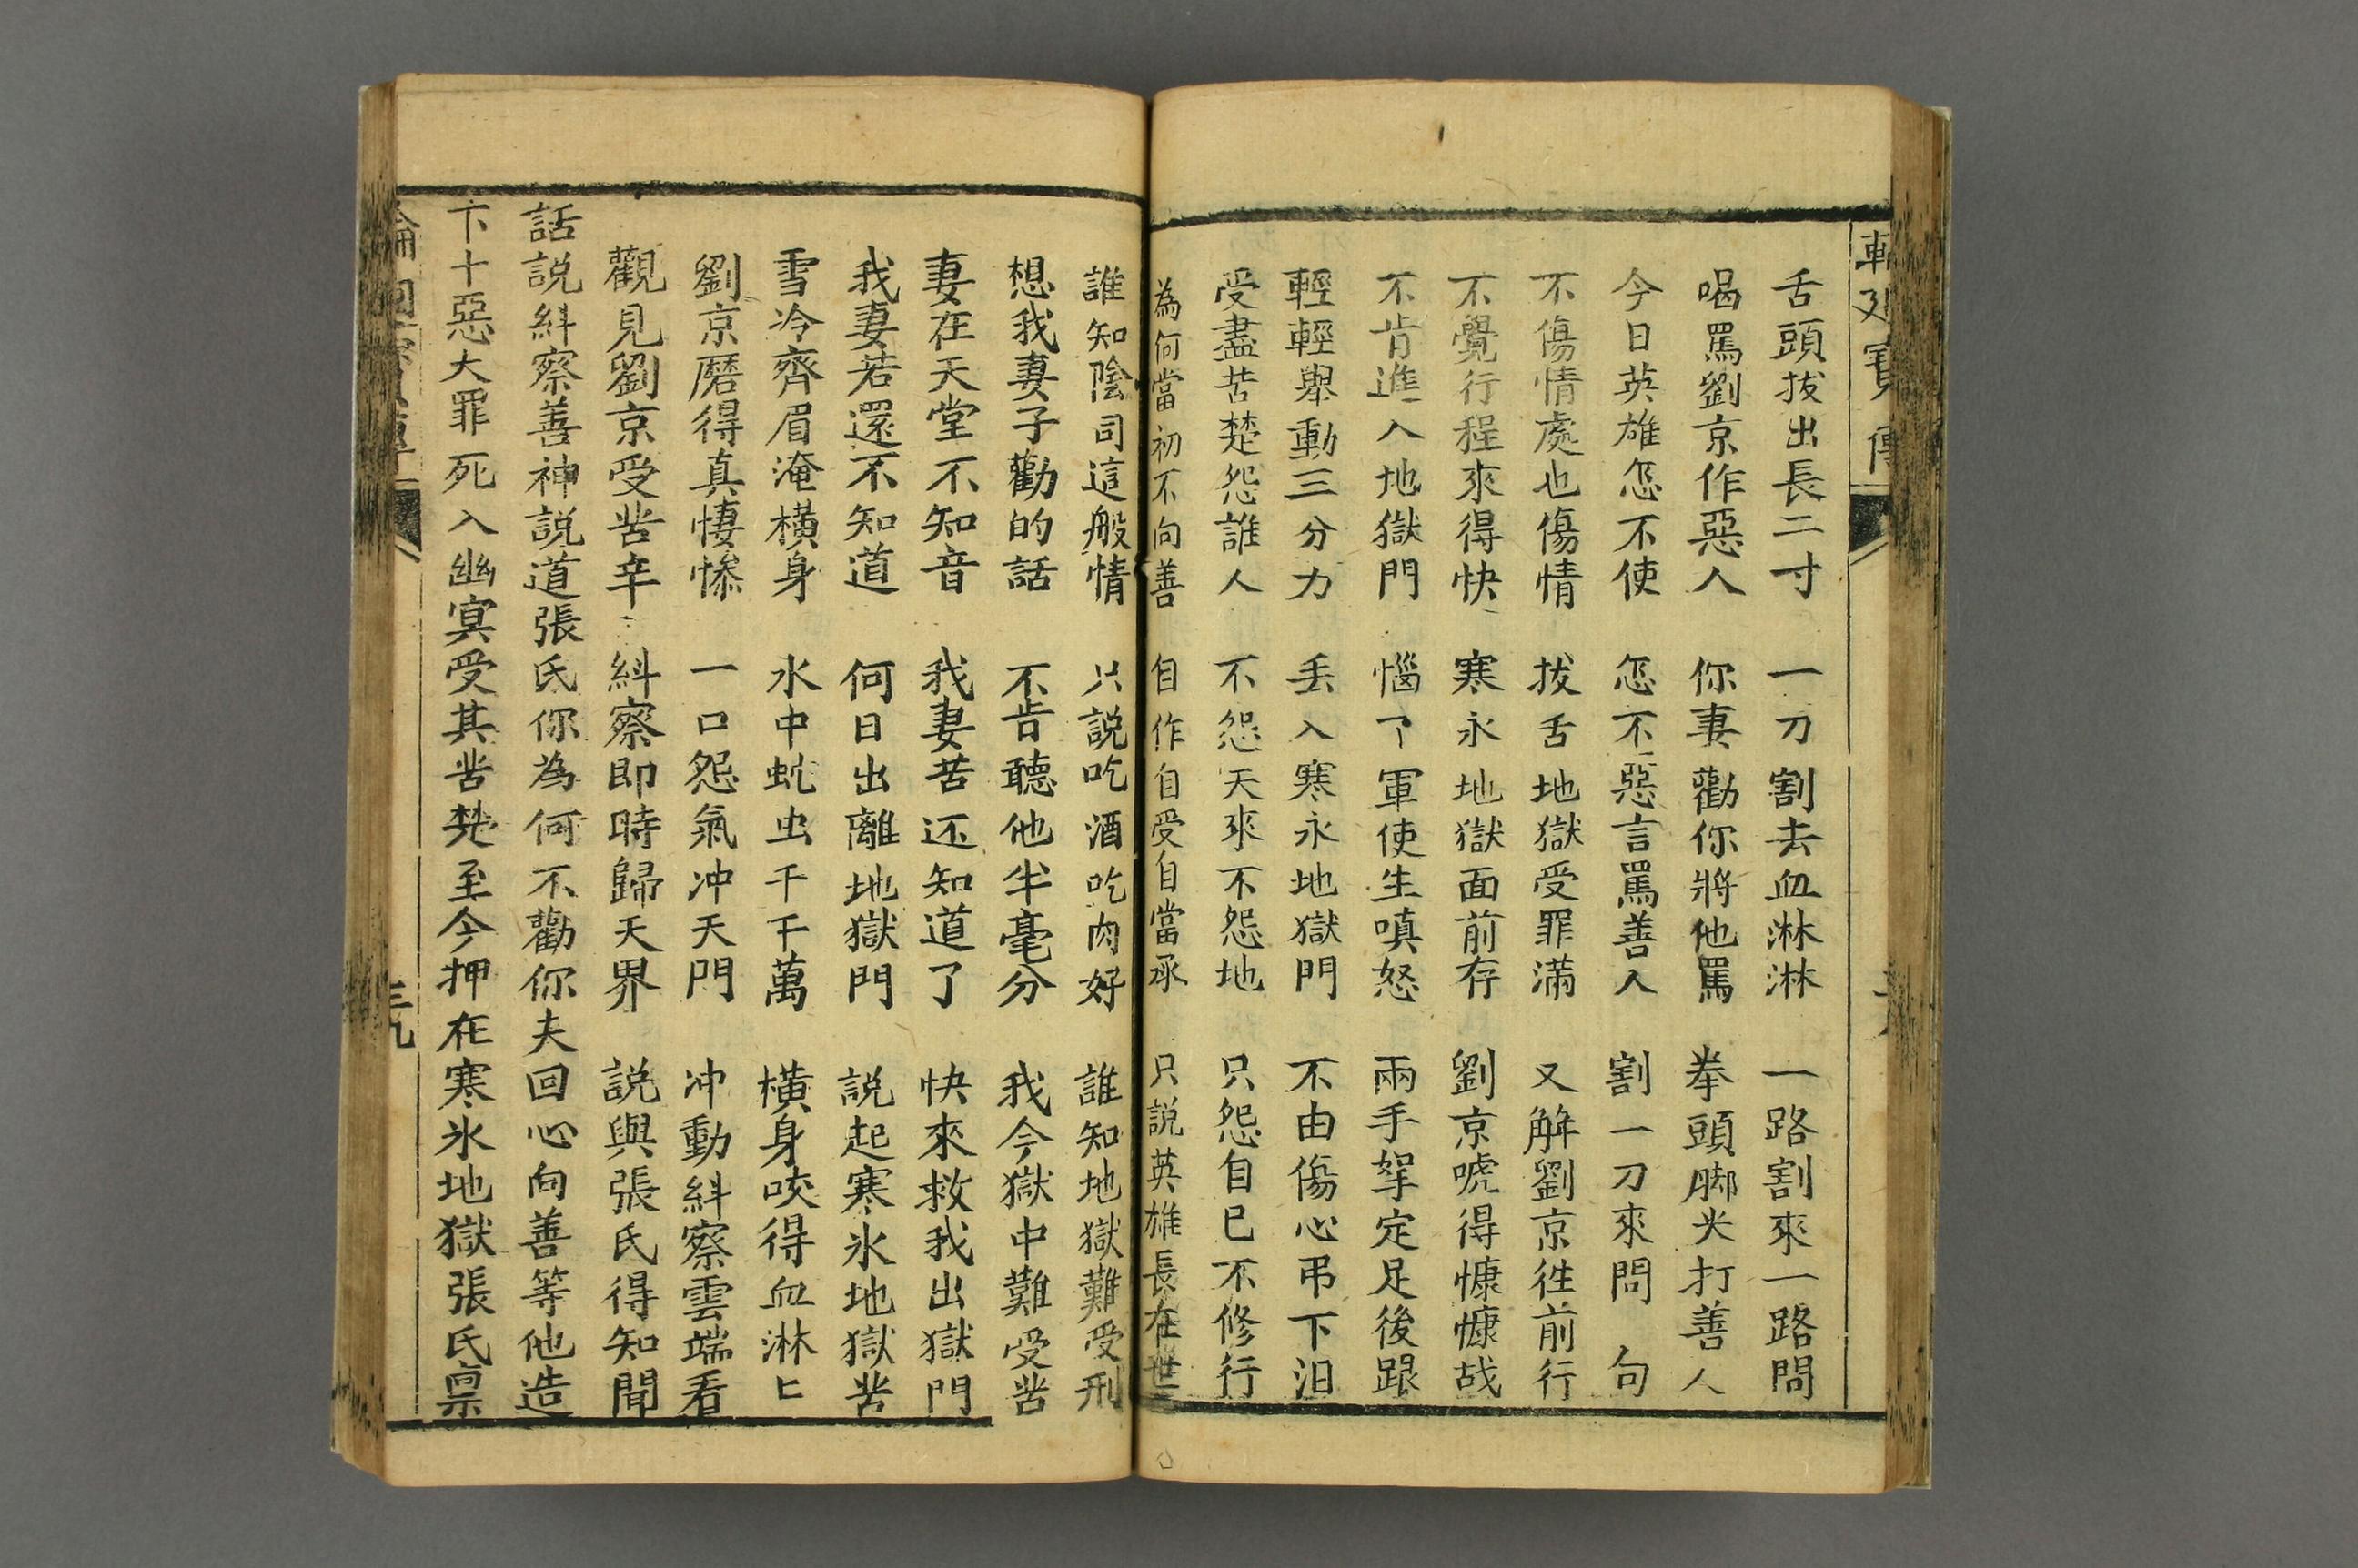 寶傳
舌頭拔出長二寸 一刀割去血淋淋 一路割來一路問
喝罵劉京作惡人 你妻勸你將他罵 拳頭脚尖打善人
今日英雄怎不使 怎不惡言罵善人 割一刀來問 句
不傷情處也傷情 拔舌地獄受罪滿 又解劉京徃前行
不覺行程來得快 寒氷地獄面前存 劉京唬得慷慷战
不肯進入地獄門 惱了軍使生嗔怒 兩手拏定足後跟
輕輕舉動三分力 丢入寒氷地獄門 不由傷心弔下泪
受盡苦楚怨誰人 不怨天來不怨地 只怨自已不修行
為何當初不向善 自作自受自當承 只説英雄長在世
誰知陰司這般情 只説吃酒吃肉好 誰知地獄難受刑
想我妻子勸的話 不肯聽他半毫分 我今獄中難受苦
妻在天堂不知音 我妻苦还知道了 快來救我出獄門
我妻若還不知道 何日出離地獄門 説起寒氷地獄苦
雪冷齊眉淹橫身 水中虵虫千千萬 橫身咬得血淋匕
劉京磨得真悽慘 一口怨氣冲天門 冲動糾察雲端看
觀見劉京受苦辛 糾察即時歸天界 説與張氏得知聞
話説糾察善神説道張氏你為何不勸你夫回心向善等他造
下十惡大罪死入幽冥受其苦楚至今押在寒氷地獄張氏禀
三九